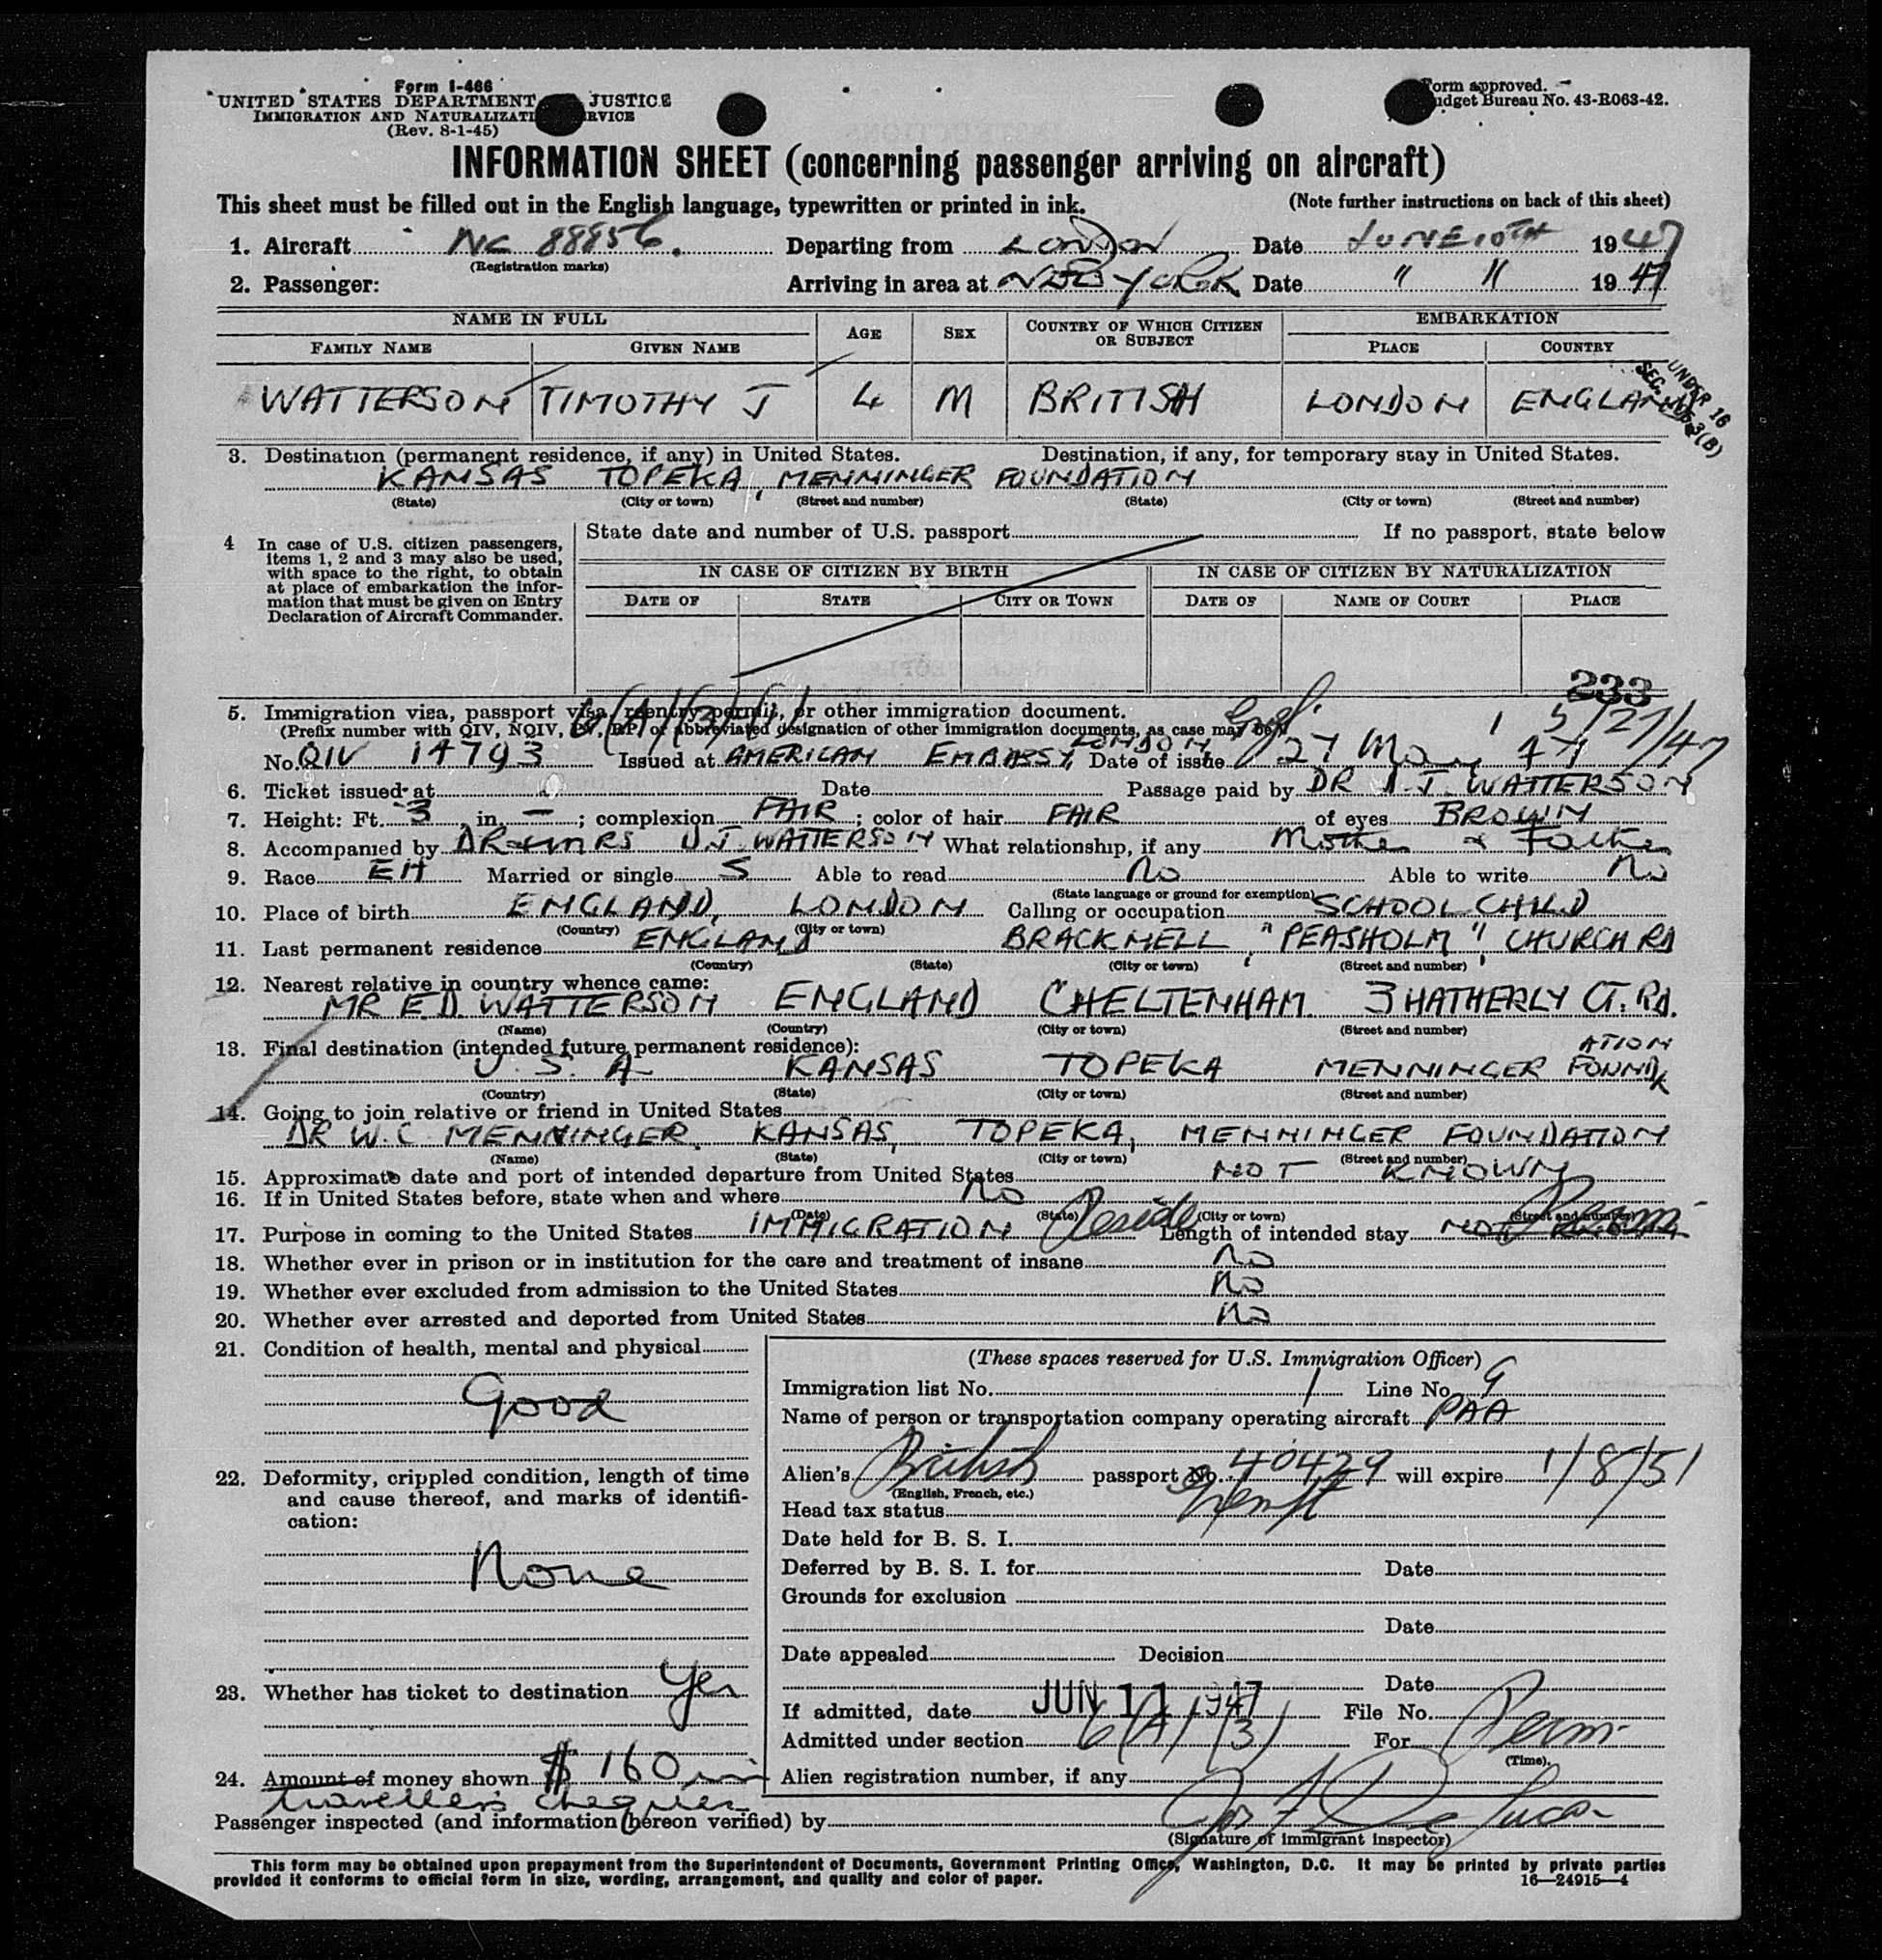 Form I-466
UNITED STATES DEPARTMENT JUSTICE
IMMIGRATION AND NATURALIZATI RVICE
(Rev. 8-1-45)
orm approved.
udget Bureau No. 43-R063-42.
INFORMATION SHEET (concerning passenger arriving on aircraft)
This sheet must be filled out in the English language, typewritten or printed in ink. (Note further instructions on back of this sheet)
1. Aircraft NC 88856. Departing from LONDON Date JUNE 10TH 1947
(Registration marks)
2. Passenger: Arriving in area at NEW YORK Date " " 1947
NAME IN FULL AGE SEX COUNTRY OF WHICH CITIZEN OR SUBJECT EMBARKATION
FAMILY NAME GIVEN NAME PLACE COUNTRY
WATTERSON TIMOTHY J 4 M BRITISH LONDON ENGLAND
UNDER 16
3. Destination (permanent residence, if any) in United States. Destination, if any, for temporary stay in United States.
KANSAS TOPEKA, MENNINGER FOUNDATION
(State) (City or town) (Street and number) (State) (City or town) (Street and number)
4 In case of U.S. citizen passengers, items 1, 2 and 3 may also be used, with space to the right, to obtain at place of embarkation the information that must be given on Entry Declaration of Aircraft Commander.
State date and number of U.S. passport If no passport, state below
IN CASE OF CITIZEN BY BIRTH IN CASE OF CITIZEN BY NATURALIZATION
DATE OF STATE CITY OR TOWN DATE OF NAME OF COURT PLACE
233
5. Immigration visa, passport visa, reentry permit, or other immigration document.
6(A)(3)(1) 5/27/47
(Prefix number with QIV, NQIV, PV, RP, or abbreviated designation of other immigration documents, as case may be)
No. QIV 14793 Issued at AMERICAN EMBASSY, LONDON Date of issue 27 May 47
6. Ticket issued at Date Passage paid by DR D.J. WATTERSON
7. Height: Ft. 3 in. — ; complexion FAIR ; color of hair FAIR of eyes BROWN
8. Accompanied by DR & MRS D.J. WATTERSON What relationship, if any Mother & Father
9. Race EH Married or single S Able to read No Able to write No
(State language or ground for exemption)
10. Place of birth ENGLAND, LONDON Calling or occupation SCHOOL CHILD
(Country) (City or town)
11. Last permanent residence ENGLAND BRACKNELL, "PEASHOLM", CHURCH RD
(Country) (State) (City or town) (Street and number)
12. Nearest relative in country whence came:
MR E.D. WATTERSON ENGLAND CHELTENHAM 3 HATHERLY CT. RD.
(Name) (Country) (City or town) (Street and number)
13. Final destination (intended future permanent residence):
U.S.A KANSAS TOPEKA MENNINGER FOUNDATION
(Country) (State) (City or town) (Street and number)
14. Going to join relative or friend in United States
DR W.C. MENNINGER, KANSAS, TOPEKA, MENNINGER FOUNDATION
(Name) (State) (City or town) (Street and number)
15. Approximate date and port of intended departure from United States NOT KNOWN
16. If in United States before, state when and where No
(Date) (State) (City or town) (Street and number)
17. Purpose in coming to the United States IMMIGRATION Reside Length of intended stay NOT Perm.
18. Whether ever in prison or in institution for the care and treatment of insane No
19. Whether ever excluded from admission to the United States No
20. Whether ever arrested and deported from United States No
21. Condition of health, mental and physical
Good
22. Deformity, crippled condition, length of time and cause thereof, and marks of identification:
None
23. Whether has ticket to destination Yes
24. Amount of money shown $ 160 in
travellers cheques
(These spaces reserved for U.S. Immigration Officer)
Immigration list No. 1 Line No. 9
Name of person or transportation company operating aircraft PAA
Alien's British passport No. 40429 will expire 1/8/51
(English, French, etc.)
Head tax status Exempt
Date held for B. S. I.
Deferred by B. S. I. for Date
Grounds for exclusion
Date
Date appealed Decision
Date
If admitted, date JUN 11 1947 File No.
Admitted under section 6(A)(3) For Perm.
(Time)
Alien registration number, if any
Passenger inspected (and information hereon verified) by Jos F De Luca
(Signature of immigrant inspector)
This form may be obtained upon prepayment from the Superintendent of Documents, Government Printing Office, Washington, D.C. It may be printed by private parties
provided it conforms to official form in size, wording, arrangement, and quality and color of paper. 16—24915—4